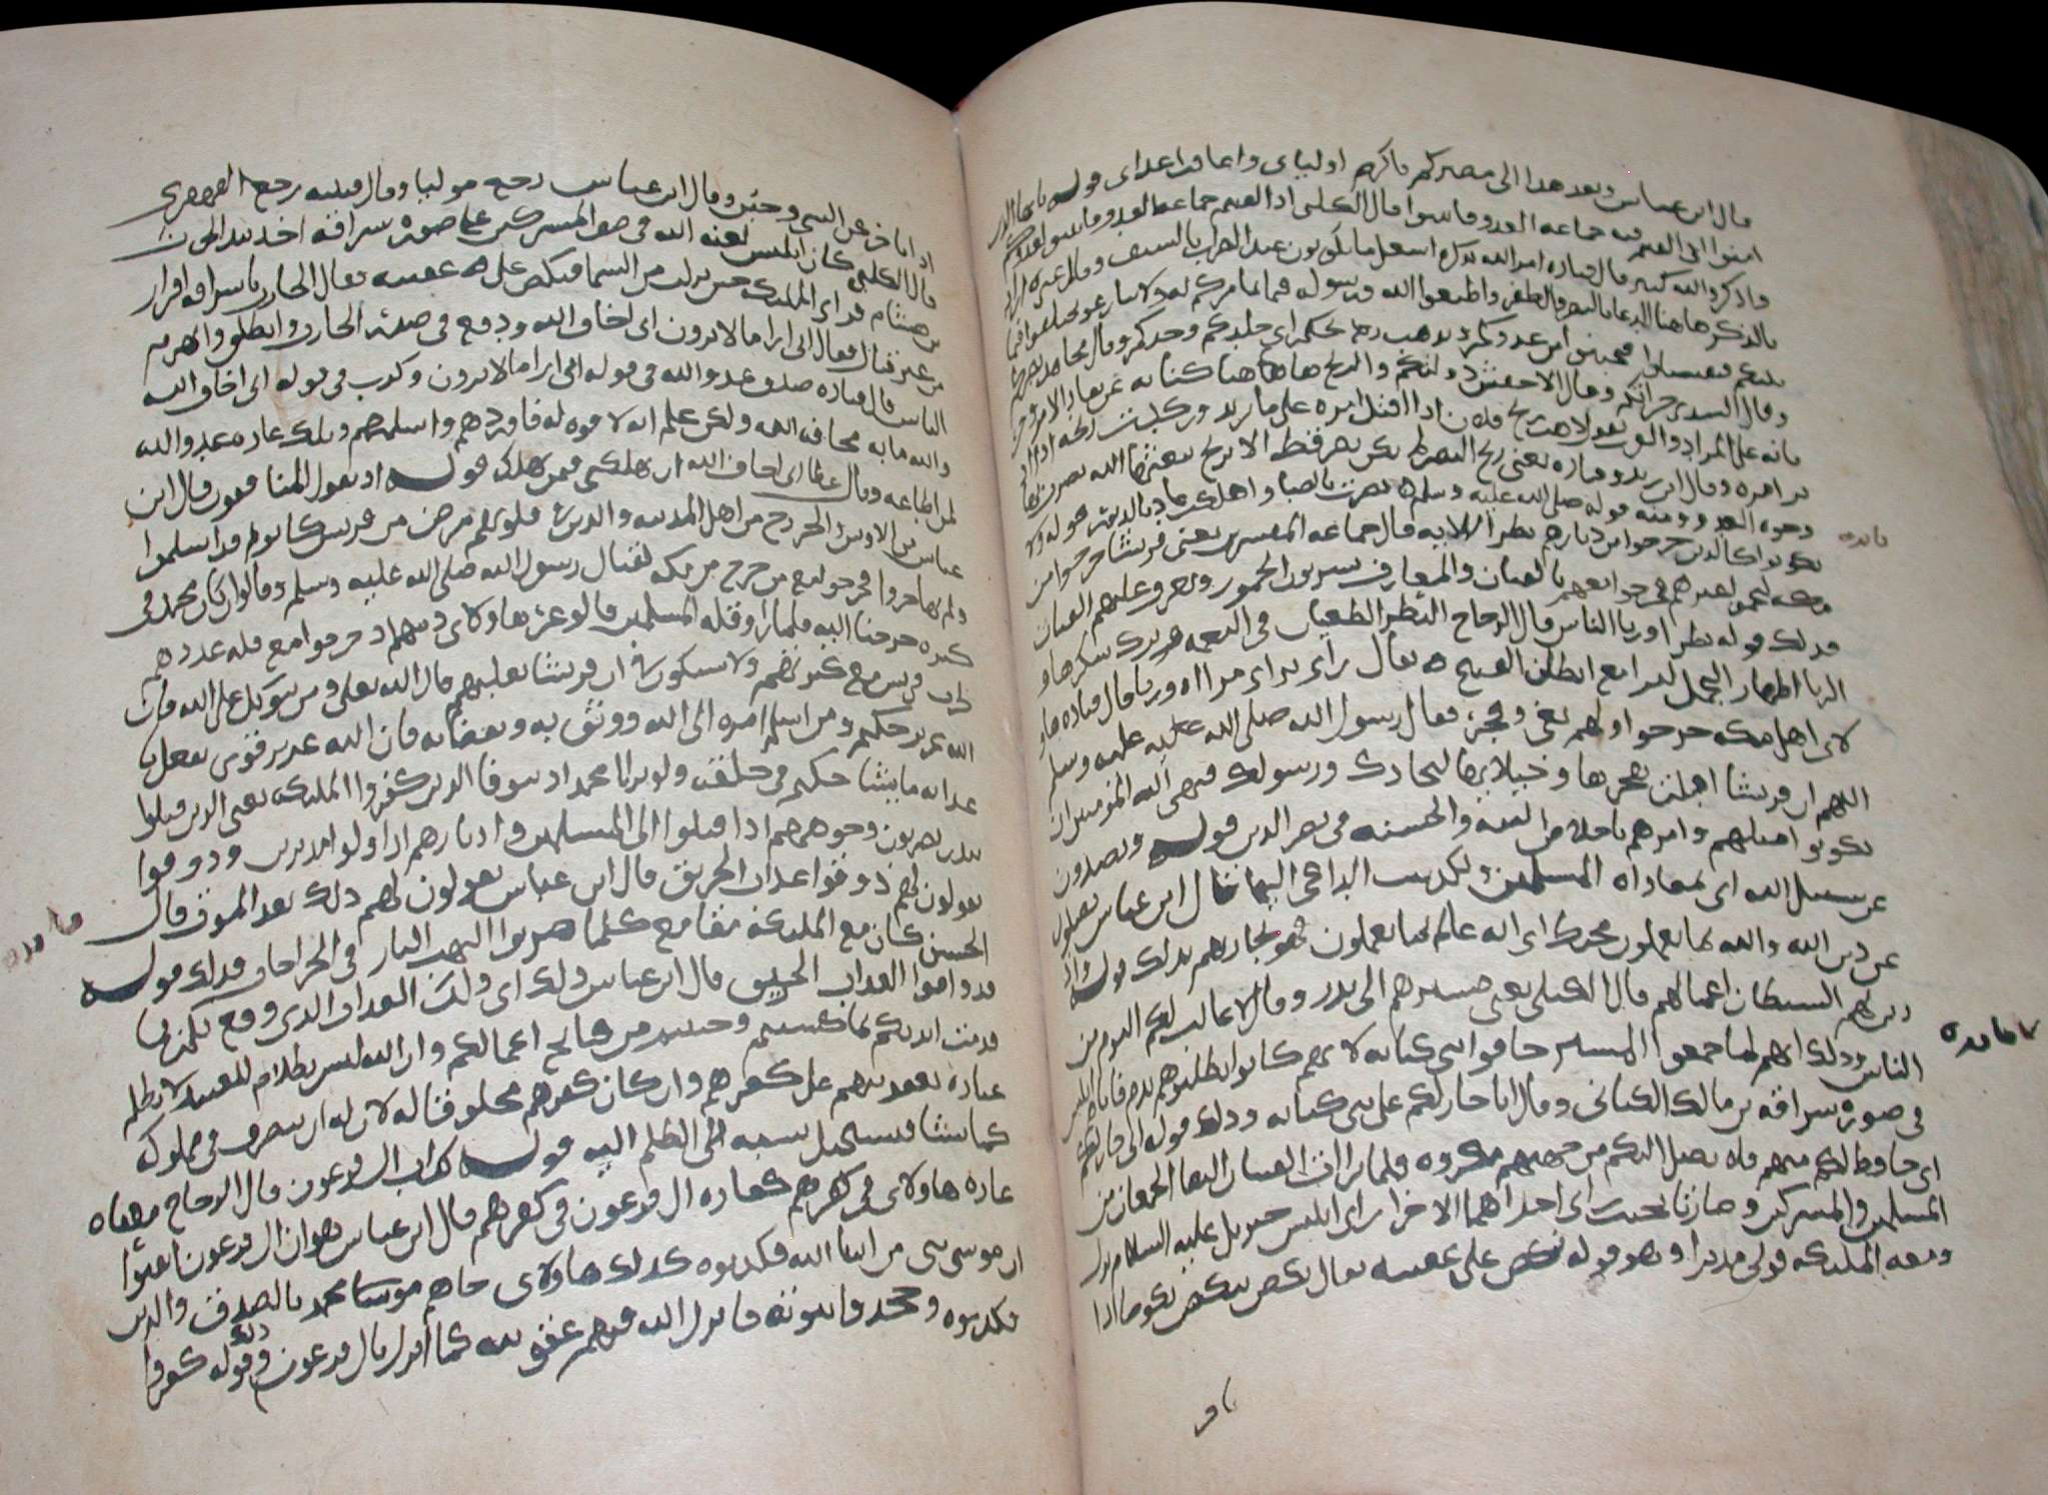 قال ابن عباس وبعد هذا الى مصيركم فاكرم اوليائي واعاقب اعدائي قوله يا ايها الذين
امنوا اذا لقيتم فيه جماعه العدو فاثبتوا قال الكلبي اذا لقيتم جماعه العدو فاثبتوا لعدوكم
واذكروا الله كثيرا قال قتاده امر الله بذكره اشغل ما تكونون عند الضراب بالسيف وقال غيره اراد
بالذكر هاهنا الدعاء بالنصر والظفر واطيعوا الله ورسوله فيما يامركم به ولا تنازعوا
فتفشلوا فتجبنوا عن عدوكم وتذهب ريحكم اي جلدكم وحدكم وقال مجاهد نصرتكم
وقال السدي جراتكم وقال الاخفش دولتكم والريح هاهنا كنايه عن نفاذ الامر
على المراد والعرب تقول هبت ريح فلان اذا اقبل امره على ما يريد
امره وقال ابن زيد وقتاده يعني ريح النصر لم يكن نصر قط الا بريح يبعثها الله تضرب
وجوه العدو ومنه قوله صلى الله عليه وسلم نصرت بالصبا واهلكت عاد بالدبور قوله ولا
تكونوا كالذين خرجوا من ديارهم بطرا الايه قال جماعه المفسرين يعني قريشا خرجوا من
مكه ليحموا عيرهم فخرجوا معهم بالقيان والمعازف يشربون الخمور وتعزف عليهم القيان
فذلك قوله بطرا وريا الناس قال الزجاج البطر الطغيان في النعمه وترك شكرها و
الريا اظهار الجميل ليرى مع ابطان القبيح يقال راى يراى مراااه وريا قال قتاده
اهل مكه خرجوا ولهم بغي وفخر فقال رسول الله صلى الله عليه وسلم
اللهم ان قريشا اقبلت بفخرها وخيلايها لتحادك ورسولك فنهى الله المومنين ان
يكونوا امثلهم وامرهم باخلاص النيه والحسبه في نصر الدين قوله ويصدون
عن سبيل الله اي لمعاداه المسلمين قال ابن عباس يصدون
عن دين الله والله بما يعملون محيط اي انه عالم بما يعملون فهو يجازيهم بذلك قوله واذ
زين لهم الشيطان اعمالهم قال الكلبي يعني مسيرهم الى بدر وقال لا غالب لكم اليوم من
الناس وذلك انهم لما اجمعوا المسير خافوا بني كنانه لانهم كانوا يطلبونهم بدم فاتاه ابليس
في صوره سراقه بن مالك الكناني وقال انا جار لكم على بني كنانه وذلك قوله اني جار لكم
اي حافظ لكم منهم فلا يصل اليكم من جهتهم مكروه فلما تراات الفيتان التقا الجمعان من
المسلمين والمشركين وصارتا بحيث راى احداهما الاخرى راى ابليس جبريل عليه السلام نزل
ومعه الملايكه فولى مدبرا وهو قوله نكص على عقبيه يقال نكص ينكص نكوصا اذا
اذا تاخر عن الشي وجبن وقال ابن عباس رجع موليا وقال قتيبه رجع القهقرى
قال الكلبي كان ابليس لعنه الله في صف المشركين على صوره سراقه اخذ بيد الحرث
بن هشام فراى الملايكه حين نزلت من السما فنكص على عقبيه فقال الحارث يا سراقه افرار
من غير قتال فقال اني ارى ما لا ترون اني اخاف الله ودفع في صدر الحارث وانطلق وانهزم
الناس قال قتاده صدق عدو الله في قوله اني ارى ما لا ترون وكذب في قوله اني اخاف الله
والله ما به مخافه الله ولكن علم انه لا قوه له فاوردهم واسلمهم وتلك عاده عدو الله
لمن اطاعه وقال عطا اني اخاف الله ان يهلكني فيمن هلك قوله اذ يقول المنافقون قال ابن
عباس من الاوس والخزرج من اهل المدينه والذين في قلوبهم مرض من قريش كانوا قد اسلموا
ولم يهاجروا فخرجوا مع من خرج من مكه لقتال رسول الله صلى الله عليه وسلم وقالوا ان كان محمد في
كثره خرجنا اليه فلما راوا قله المسلمين قالوا غر هاولاي دينهم اذ خرجوا مع قله عددهم
حرب قريش مع كثرتهم ولا يشكون في ان قريشا تغلبهم قال الله تعالى ومن يتوكل على الله فان
الله عزيز حكيم ومن اسلم امره الى الله ووثق به وبقضايه فان الله عزيز قوي يفعل
عدايه ما يشا حكيم في خلقه ولو ترى يا محمد اذ يتوفى الذين كفروا الملايكه يعني الذين قتلوا
ببدر يضربون وجوههم اذا اقبلوا الى المسلمين وادبارهم اذا ولوا مدبرين وذوقوا
يقولون لهم ذوقوا عذاب الحريق قال ابن عباس يقولون لهم ذلك بعد الموت قال
الحسن كان مع الملايكه مقامع كلما ضربوا التهب النار في الجراحات فذلك قوله
فذوقوا العذاب الحريق قال ابن عباس ذلك اي ذلك العذاب الذي وقع بكم بما
قدمت ايديكم بما كسبتم وجنيتم من قبايح اعمالكم وان الله ليس بظلام للعبيد لا يظلم
عباده بعقوبتهم على كفرهم وان كان كفرهم مخلوقا له لان له ان يتصرف في مملوكه
كما يشا فيستحيل نسبه الظلم اليه قوله كداب ال فرعون قال الزجاج معناه
عاده هاولاي في كفرهم كعاده ال فرعون في كفرهم قال ابن عباس هو ان ال فرعون ايقنوا
ان موسى نبي من انبيا الله فكذبوه كذلك هاولاي جاهم محمد بالصدق والدين
فكذبوه وجحدوا نبوته فانزل الله فيهم عقوبه كما انزل بال فرعون وذلك قوله كفروا